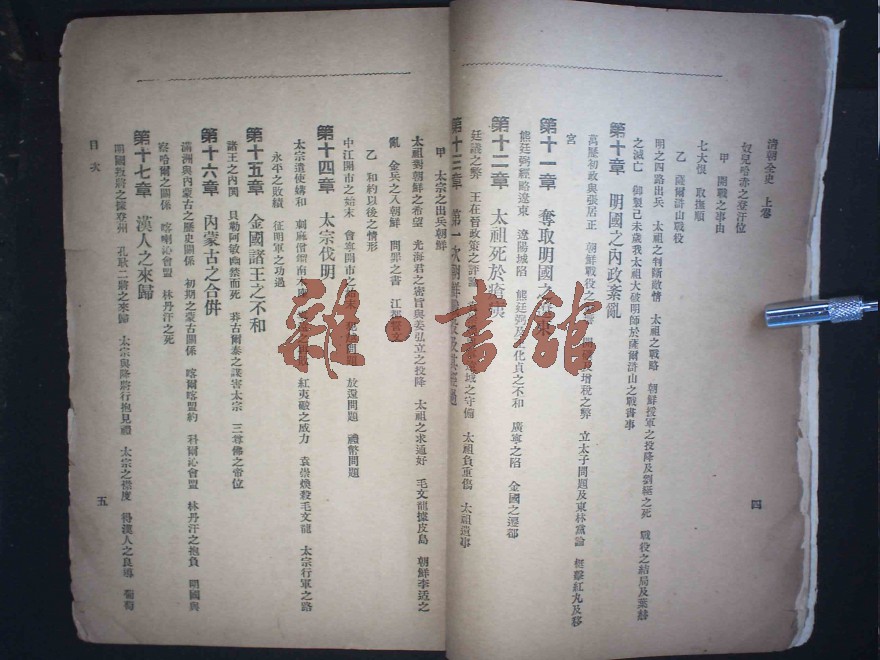 清朝全史　上卷
奴兒哈赤之登汗位
甲　開戰之事由
七大恨　取撫順
乙　薩爾滸山戰役
明之四路出兵　太祖之判斷敵情　太祖之戰略　朝鮮援軍之投降及劉綎之死　戰役之結局及葉赫
之滅亡　御製己未歲我太祖大破明師於薩爾滸山之戰書事
第十章　明國之內政紊亂
萬歷初政與張居正　朝鮮戰役之　增稅之弊　立太子問題及東林黨論　梃擊紅丸及移
宮
第十一章　奪取明國之遼東
熊廷弼經略遼東　遼陽城陷　熊廷弼及王化貞之不和　廣寧之陷　金國之遷都
第十二章　太祖死於瘡痍
廷議之弊　王在晉政策之評論　城之守備　太祖負重傷　太祖遺事
第十三章　第一次朝鮮
四
甲　太宗之出兵朝鮮
太祖對朝鮮之希望　光海君之密旨與姜弘立之投降　太祖之求通好　毛文龍據皮島　朝鮮李适之
亂　金兵之入朝鮮　問罪之書　江都誓文
乙　和約以後之情形
中江開市之始末　會寧開市之始末　問題　放還問題　禮幣問題
第十四章　太宗伐明
太宗遣使媾和　刺麻僧　紅夷礮之威力　袁崇煥殺毛文龍　太宗行軍之路
永平之敗績　征明軍之功過
第十五章　金國諸王之不和
諸王之內鬨　貝勒阿敏幽禁而死　莽古爾泰之謀害太宗　三尊佛之帝位
第十六章　內蒙古之合併
滿洲與內蒙古之歷史關係　初期之蒙古關係　喀爾喀盟約　科爾沁會盟　林丹汗之抱負　明國與
察哈爾之關係　喀喇沁會盟　林丹汗之死
第十七章　漢人之來歸
明國叛將之擾登州　孔耿二將之來歸　太宗與降將行抱見禮　太宗之襟度　得漢人之良導　葡萄
目次
五
雜·書館